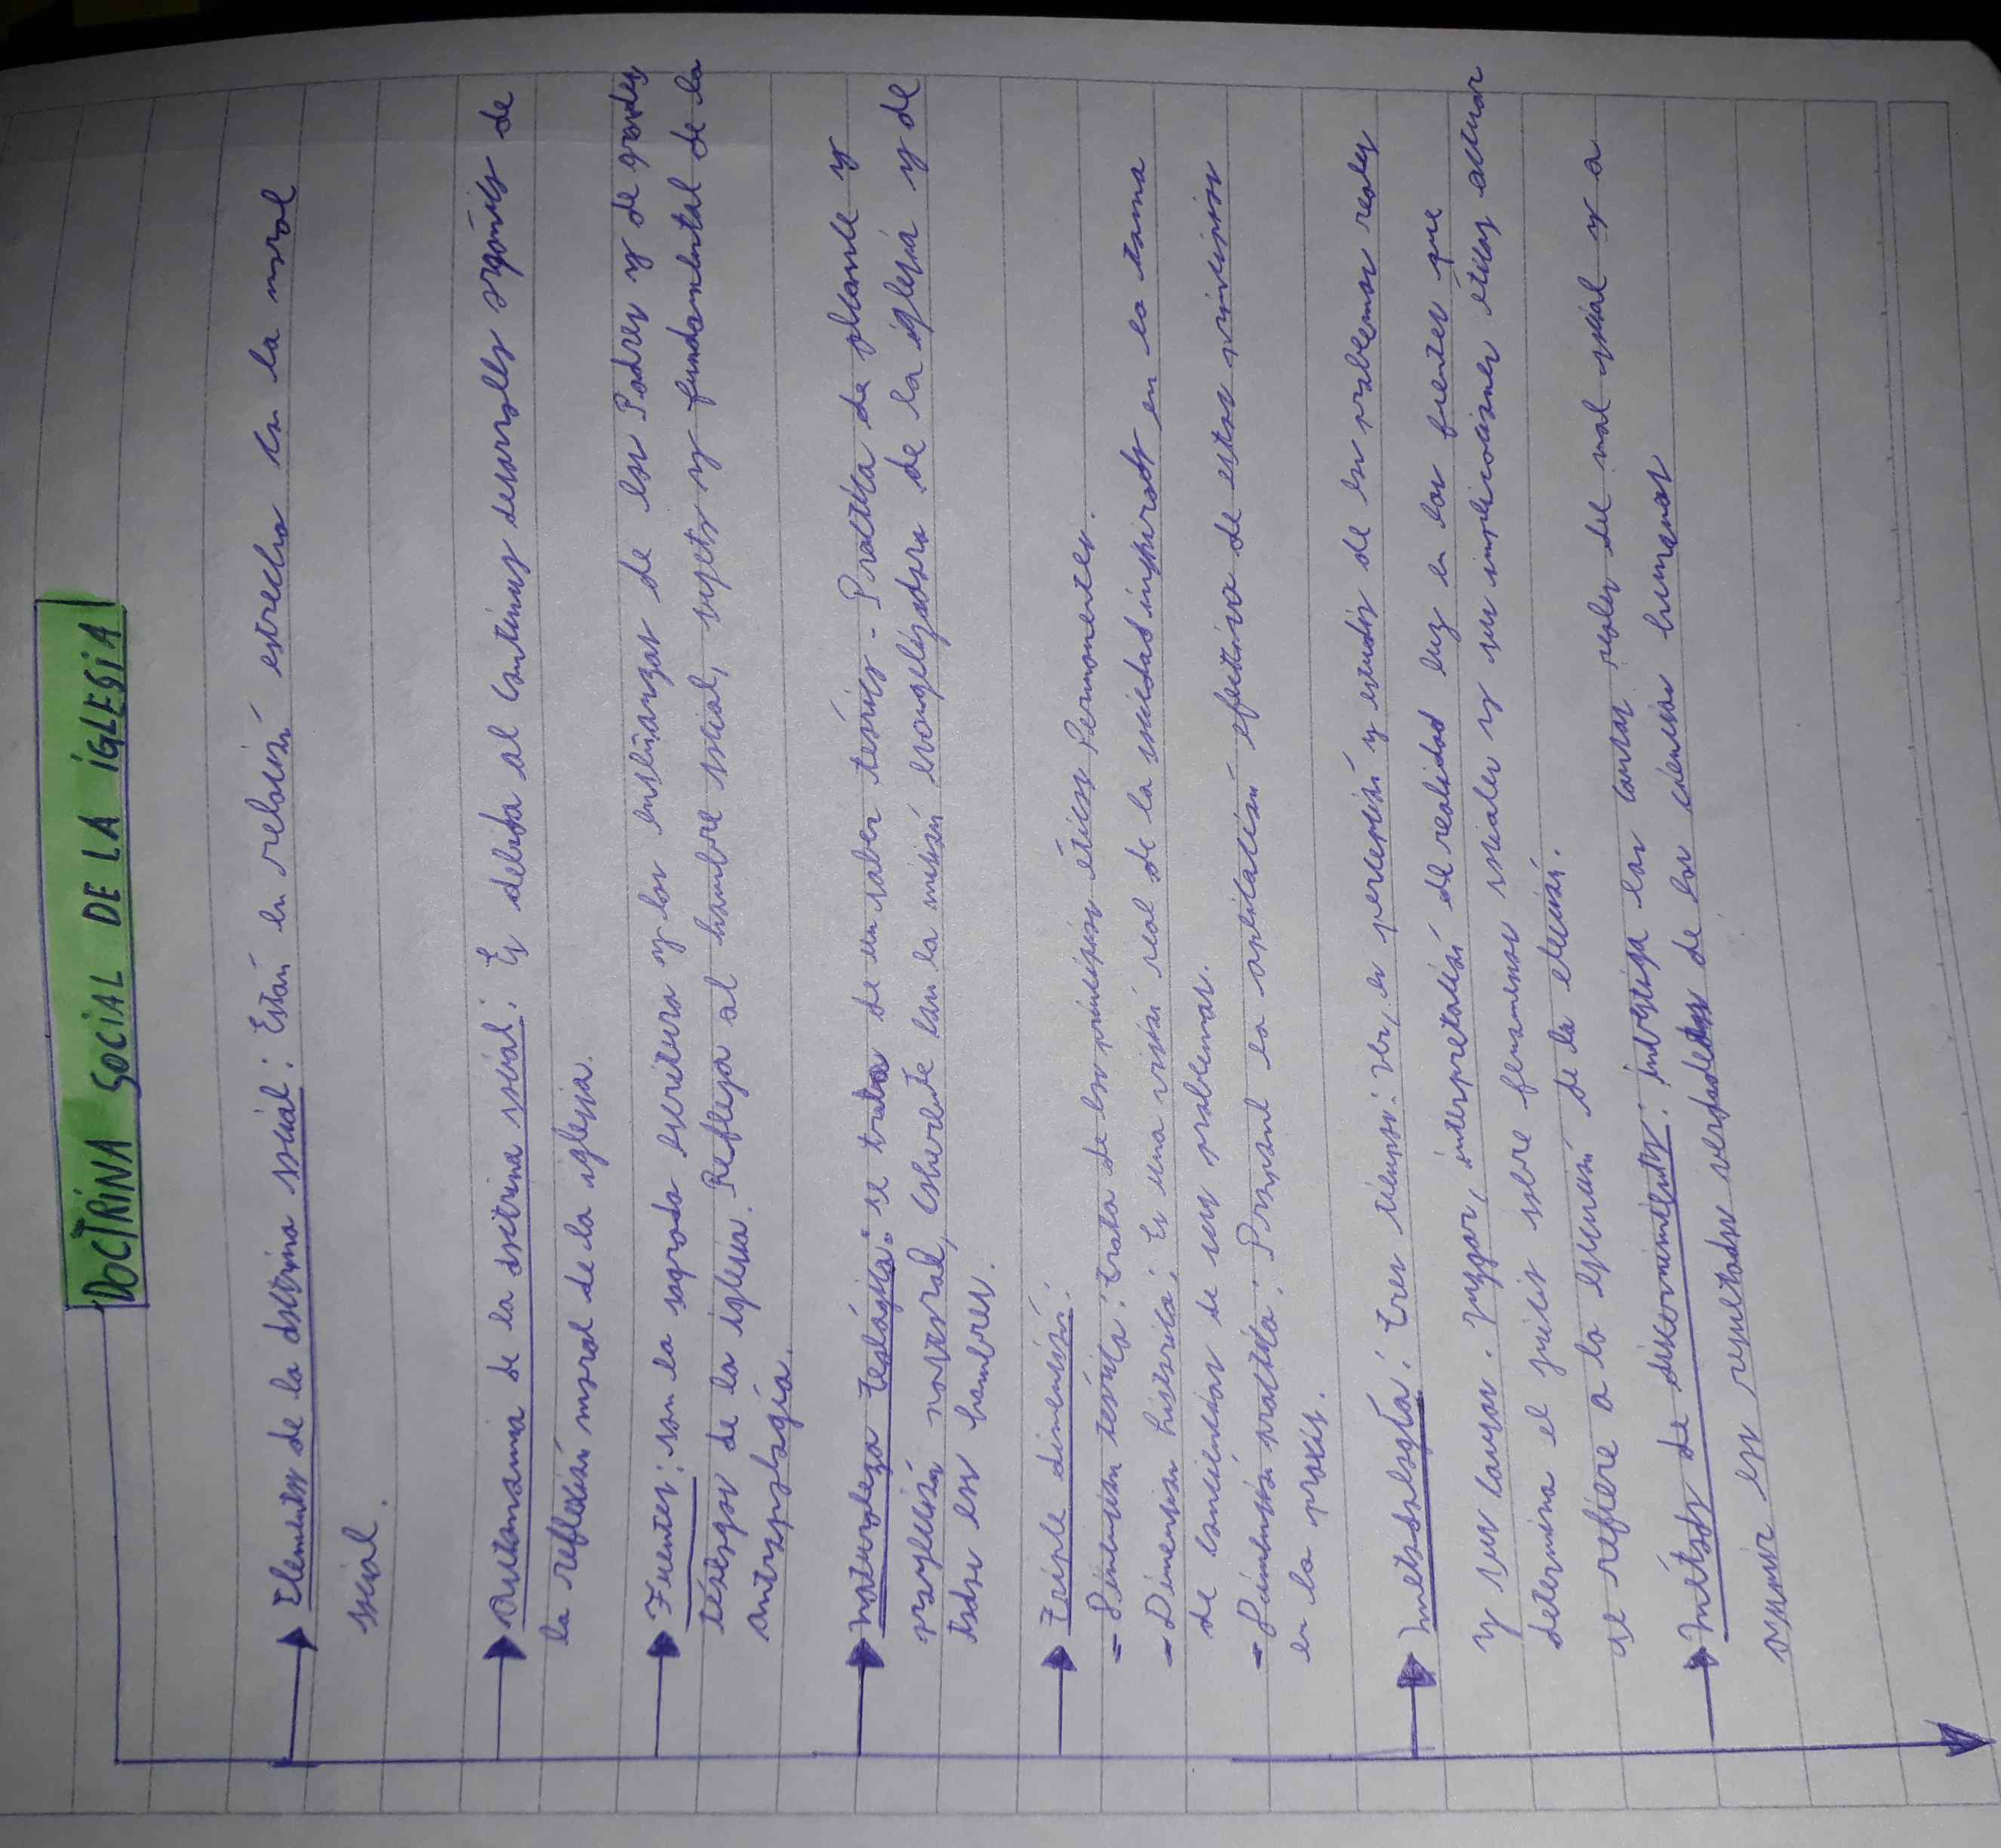 DOCTRINA SOCIAL DE LA IGLESIA
Elementos de la doctrina social: Están en relación estrecha con la moral
social.
Autonomia de la doctrina social: Es debido al continuo desarrollo orgánico de
la reflexión moral de la iglesia.
Fuentes: son la sagrada escritura y las enseñanzas de los Padres y de grandes
teólogos de la iglesia. Refleja al hombre social, sujeto y fundamental de la
antropología.
naturaleza teológica: se trata de un saber teórico - Práctica da plasme y
proyección pastoral, coherente con la misión evangelizadora de la iglesia y de
todos los hombres.
Triple dimensión:
- Dimensión teórica: trata de los principios éticos Permanentes.
- Dimensión histórica: Es una visión real de la sociedad inspirado en la toma
de conciencias de sus problemas.
- Dimensión práctica: Propone la aplicación efectiva de estos principios
en la praxis.
metodología: tres tiempos: Ver, es percepción y estudio de los problemas reales
y sus causas. Juzgar, interpretación de realidad luz en las fuentes que
determina el juicio sobre fenomenos sociales y sus implicaciones éticas actuar
se refiere a la ejecución de la elección.
Método de discernimiento: investiga las causas reales del mal social y a
asumir los resultados verdaderos de las ciencias humanas